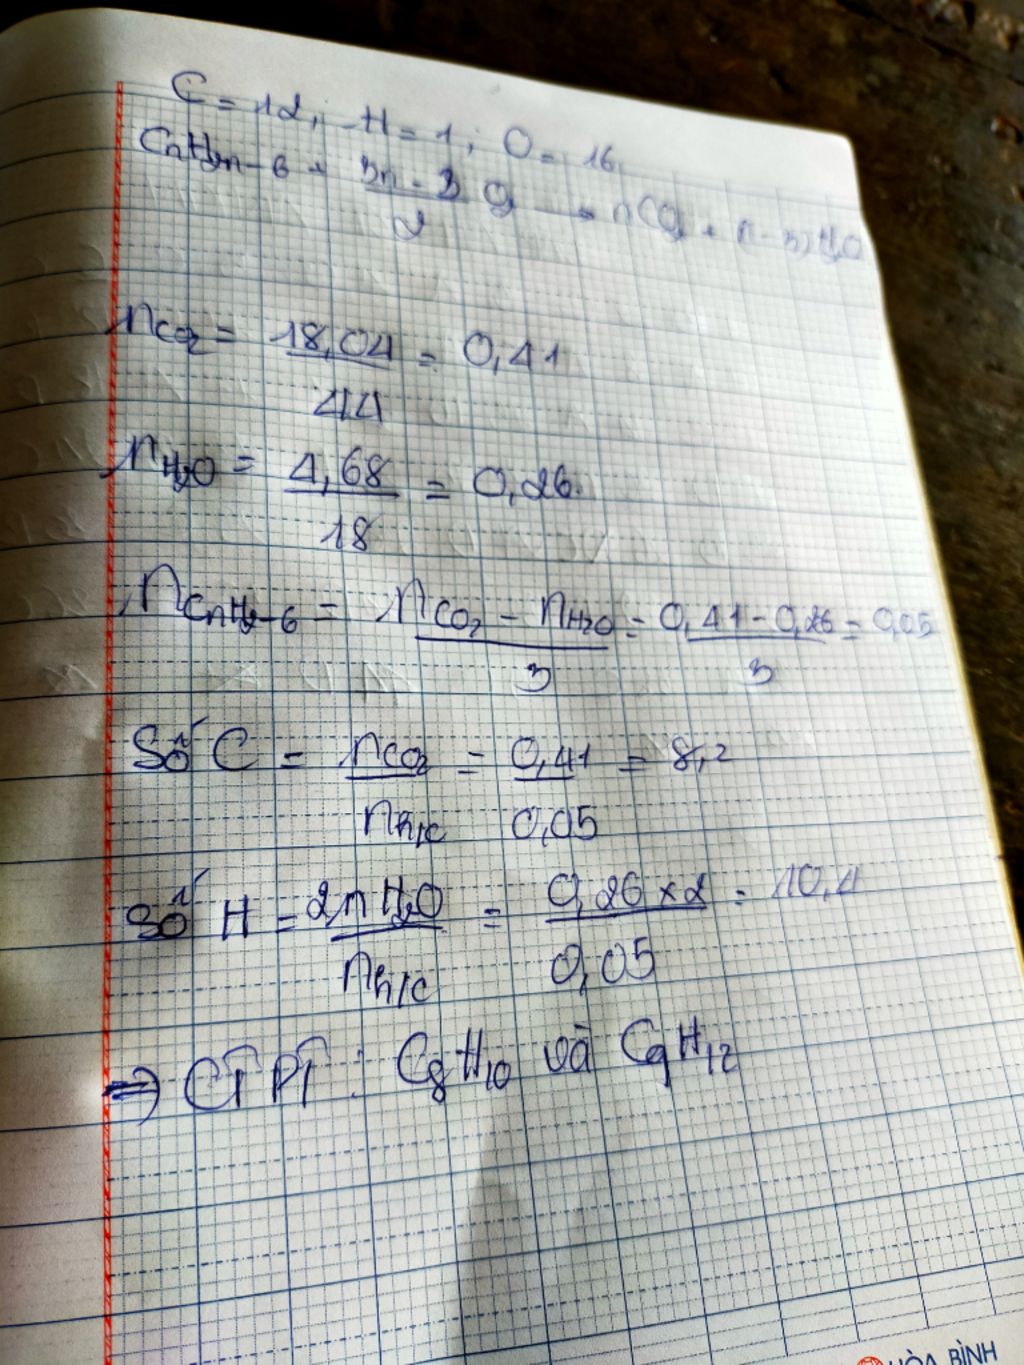 C = 12; H = 1; O = 16
CnH2n-6 + 3n-3/2 O2 → nCO2 + (n-3)H2O
nCO2 = 18,04/44 = 0,41
nH2O = 4,68/18 = 0,26.
nCnH2-6 = nCO2 - nH2O/3 = 0,41-0,26/3 = 0,05
Số C = nCO2/nh/c = 0,41/0,05 = 8,2
Số H = 2nH2O/nh/c = 0,26x2/0,05 = 10,4
=> CTPT: C8H10 và C9H12
HÒA BÌNH